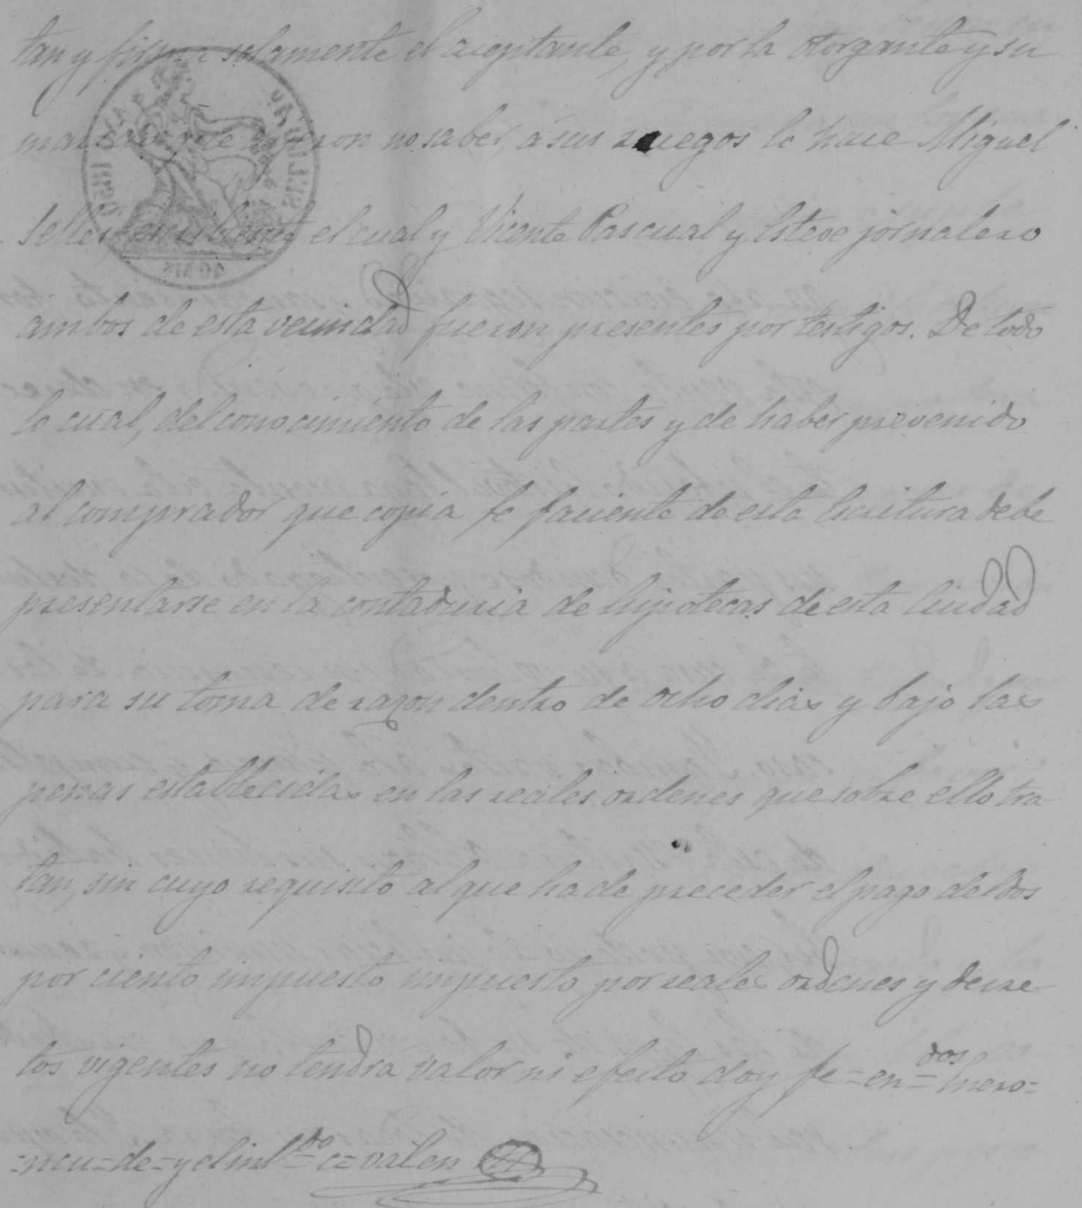 tan y firma solamente el aceptante, y por la otorgante y su
marido que dijeron no saber, á sus ruegos lo hace Miguel
Selles escribiente el cual y Vicente Pascual y Esteve jornalero
ambos de esta vecindad fueron presentes por testigos. De todo
lo cual, del conocimiento de las partes y de haber prevenido
al comprador que copia fe faciente de esta Escritura debe
presentarse en la contaduria de hipotecas de esta Ciudad
para su toma de razon dentro de ocho dias y bajo las
penas establecidas en las reales ordenes que sobre ello tra-
tan, sin cuyo requisito al que ha de preceder el pago del dos
por ciento impuesto impuesto por reales ordenes y decre-
tos vigentes no tendra valor ni efecto doy fe = en = dos = Enero =
= de = y el = valen